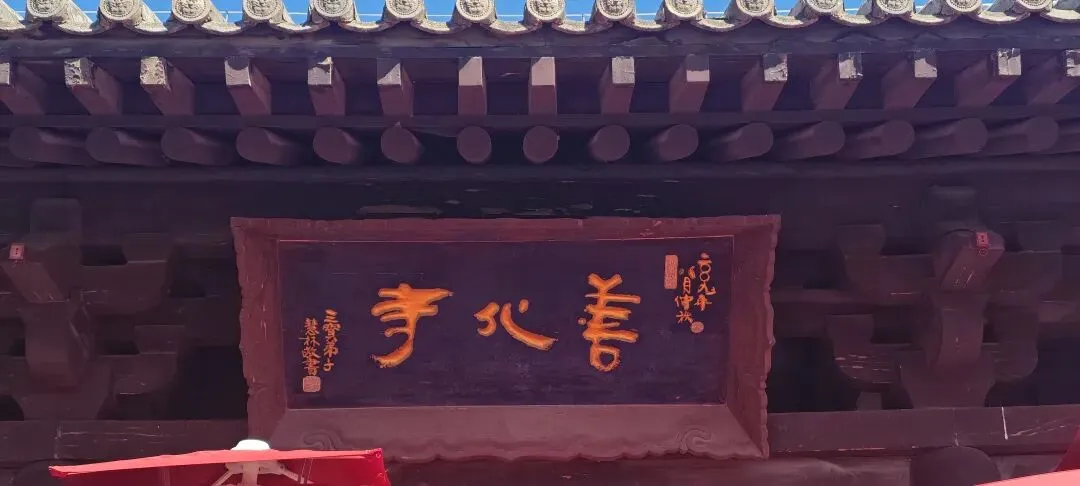 二〇〇九年
善化寺
三寶弟子
慧林敬書